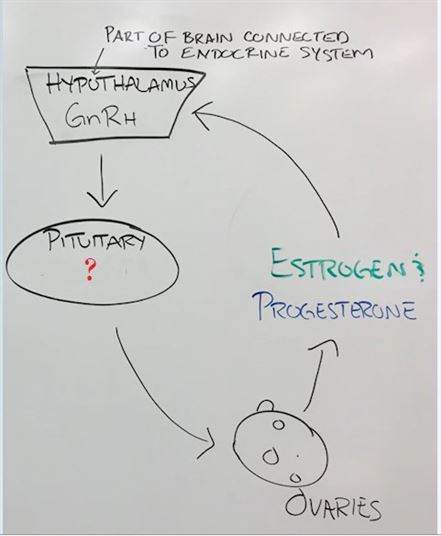 PART OF BRAIN CONNECTED
TO ENDOCRINE SYSTEM
HYPOTHALAMUS
GnRH
PITUITARY
?
ESTROGEN &
PROGESTERONE
OVARIES